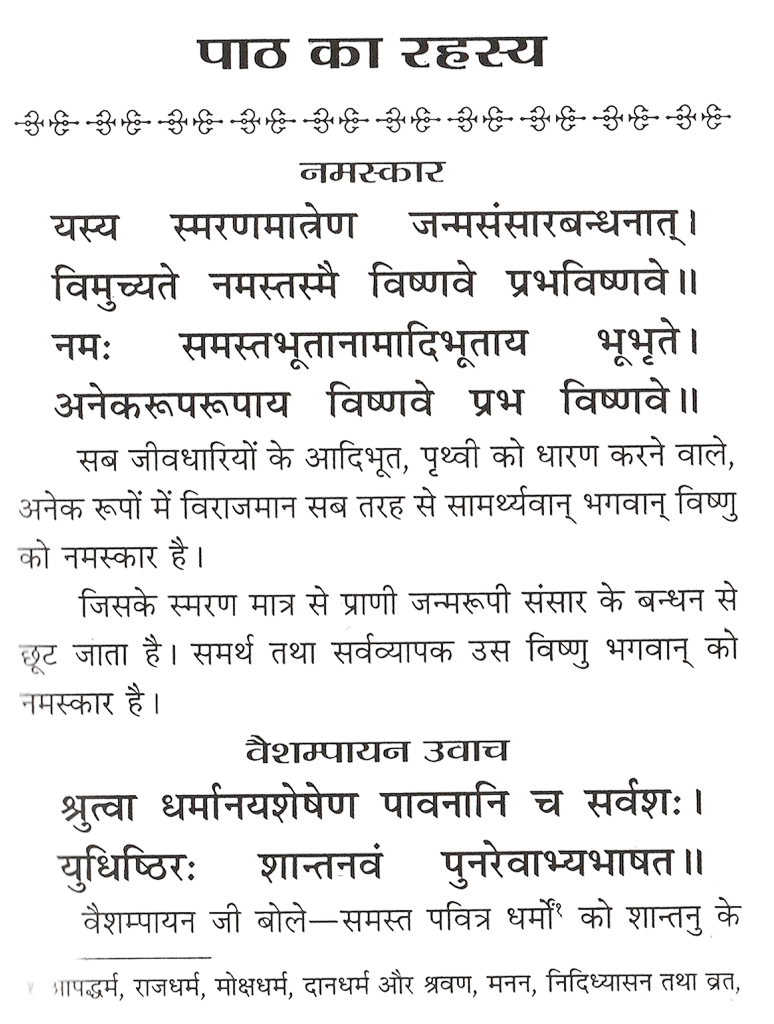 पाठ का रहस्य
नमस्कार
यस्य स्मरणमात्रेण जन्मसंसारबन्धनात्।
विमुच्यते नमस्तस्मै विष्णवे प्रभविष्णवे॥
नमः समस्तभूतानामादिभूताय भूभृते।
अनेकरूपरूपाय विष्णवे प्रभ विष्णवे॥
सब जीवधारियों के आदिभूत, पृथ्वी को धारण करने वाले,
अनेक रूपों में विराजमान सब तरह से सामर्थ्यवान् भगवान् विष्णु
को नमस्कार है।
जिसके स्मरण मात्र से प्राणी जन्मरूपी संसार के बन्धन से
छूट जाता है। समर्थ तथा सर्वव्यापक उस विष्णु भगवान् को
नमस्कार है।
वैशम्पायन उवाच
श्रुत्वा धर्मानयशेषेण पावनानि च सर्वशः।
युधिष्ठिरः शान्तनवं पुनरेवाभ्यभाषत॥
वैशम्पायन जी बोले—समस्त पवित्र धर्मों१ को शान्तनु के
आपद्धर्म, राजधर्म, मोक्षधर्म, दानधर्म और श्रवण, मनन, निदिध्यासन तथा व्रत,